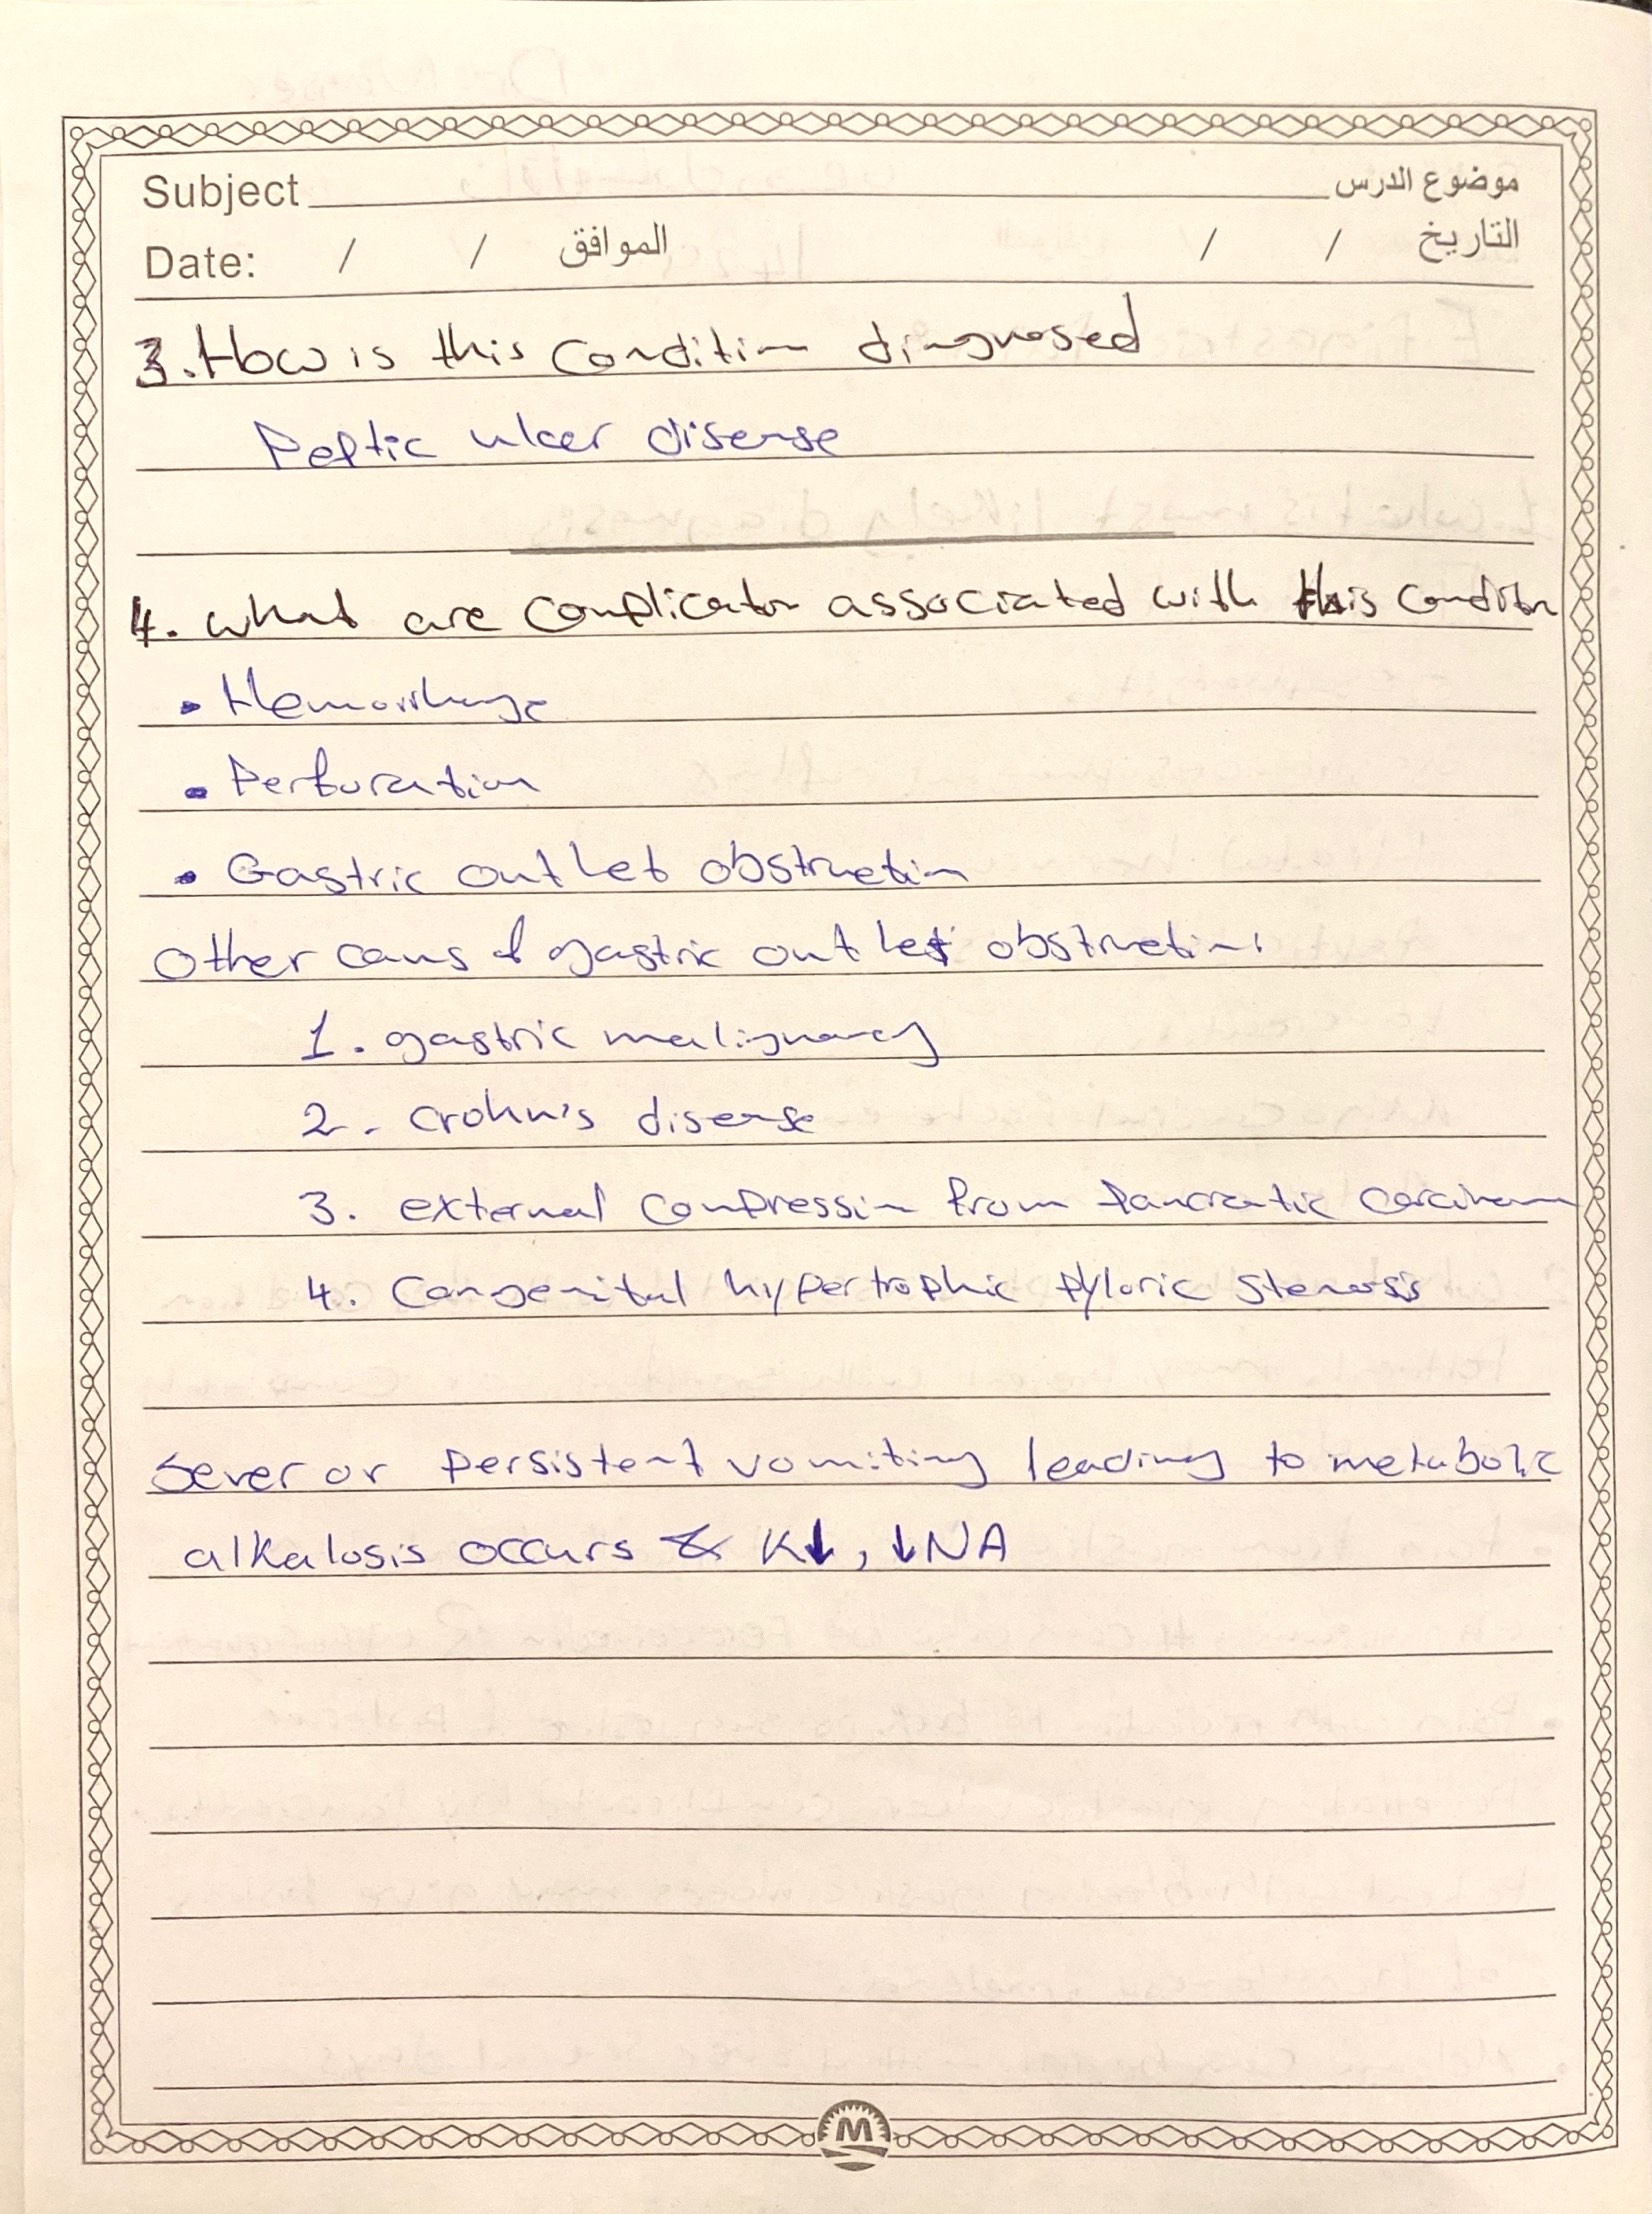 Subject موضوع الدرس
Date: / / الموافق / / التاريخ
3. How is this condition diagnosed
Peptic ulcer disease
4. what are complication associated with this condition
• Hemorrhage
• Perforation
• Gastric out let obstruction
other caus of gastric out let obstruction:
1. gastric malignancy
2. crohn's disease
3. external compression from pancreatic carcinoma
4. Congenital hypertrophic pyloric stenosis
Sever or persistent vomiting leading to metabolic
alkalosis occurs & K↓, ↓NA
M